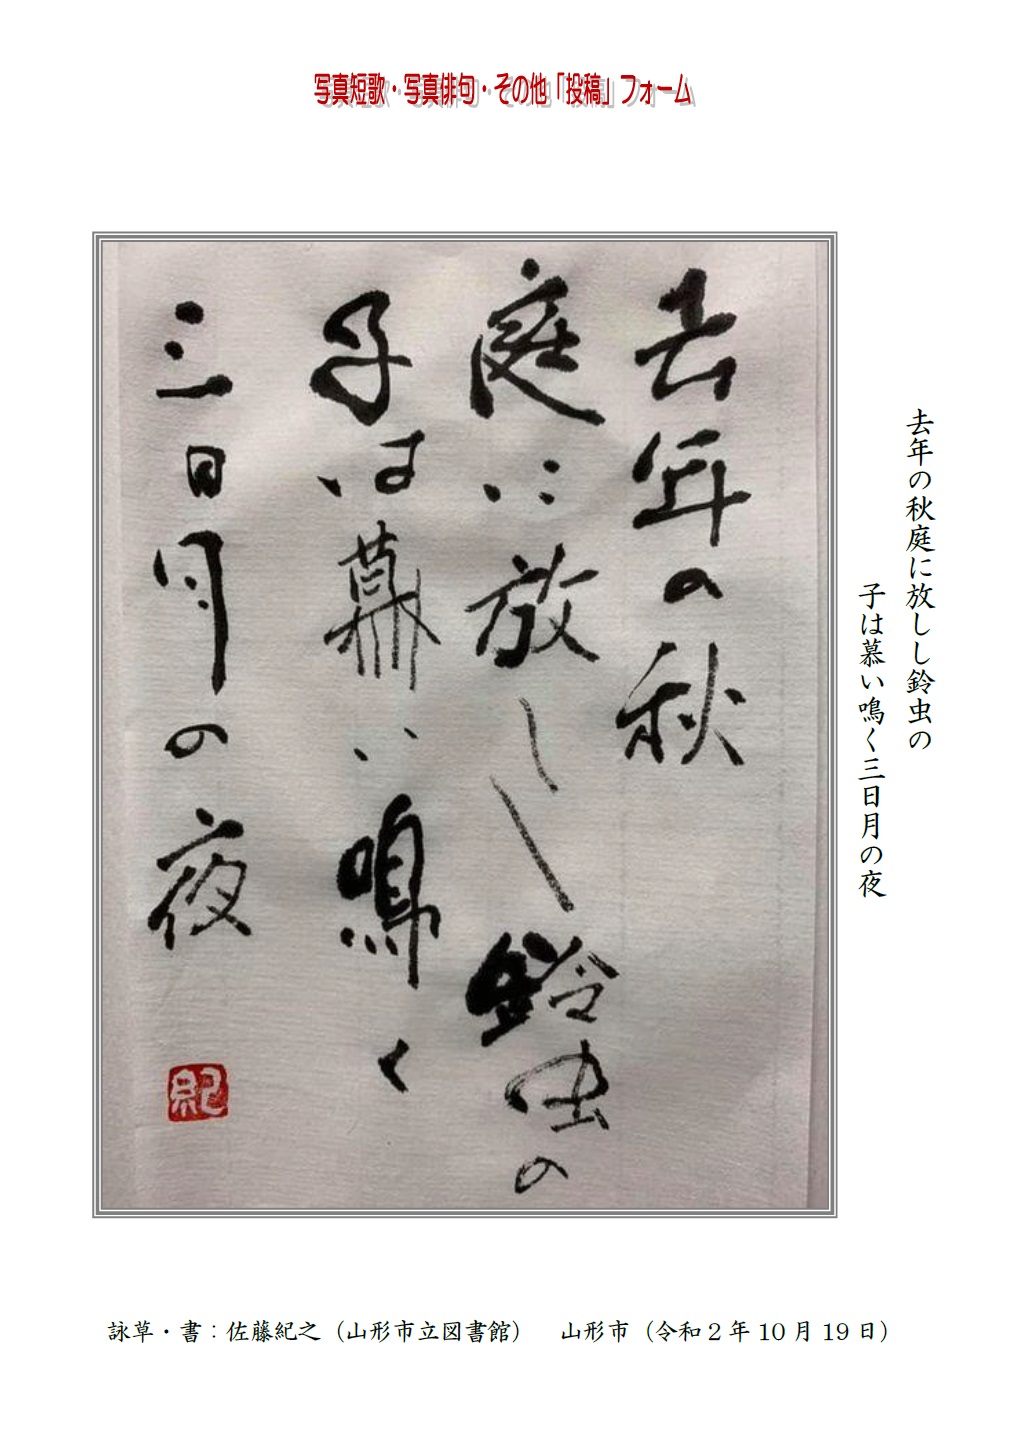 写真短歌・写真俳句・その他「投稿」フォーム
去年の秋庭に放しし鈴虫の
子は慕い鳴く三日月の夜
去年の秋
庭に放しし鈴虫の
子は慕い鳴く
三日月の夜
紀
詠草・書：佐藤紀之（山形市立図書館）　山形市（令和2年10月19日）